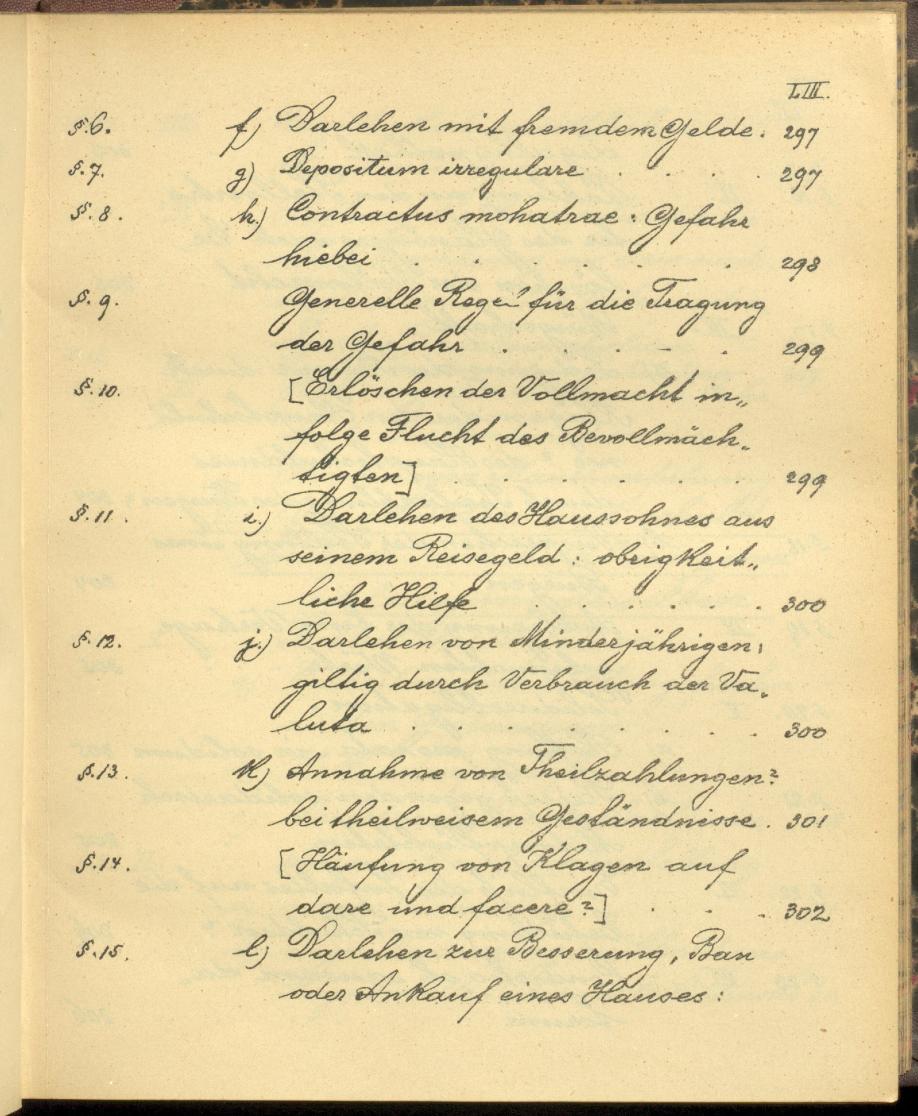 LIII.
§.6. f) Darlehen mit fremdem Gelde. 297
§.7. g) Depositum irregulare . . . . 297
§.8. h.) Contractus mohatrae: Gefahr
hiebei . . . . . . 298
§.9. Generelle Regel für die Tragung
der Gefahr . . . . . 299
§.10. [Erlöschen der Vollmacht in„
folge Flucht des Bevollmäch„
tigten] . . . . . 299
§.11. i.) Darlehen des Haussohnes aus
seinem Reisegeld: obrigkeit„
liche Hilfe . . . . . . 300
§.12. j.) Darlehen von Minderjährigen:
giltig durch Verbrauch der Va„
luta . . . . . . . 300
§.13. k) Annahme von Theilzahlungen?
bei theilweisem Geständnisse. 301
§.14. [Häufung von Klagen auf
dare und facere?] . . . 302
§.15. l) Darlehen zur Besserung, Bau
oder Ankauf eines Hauses: